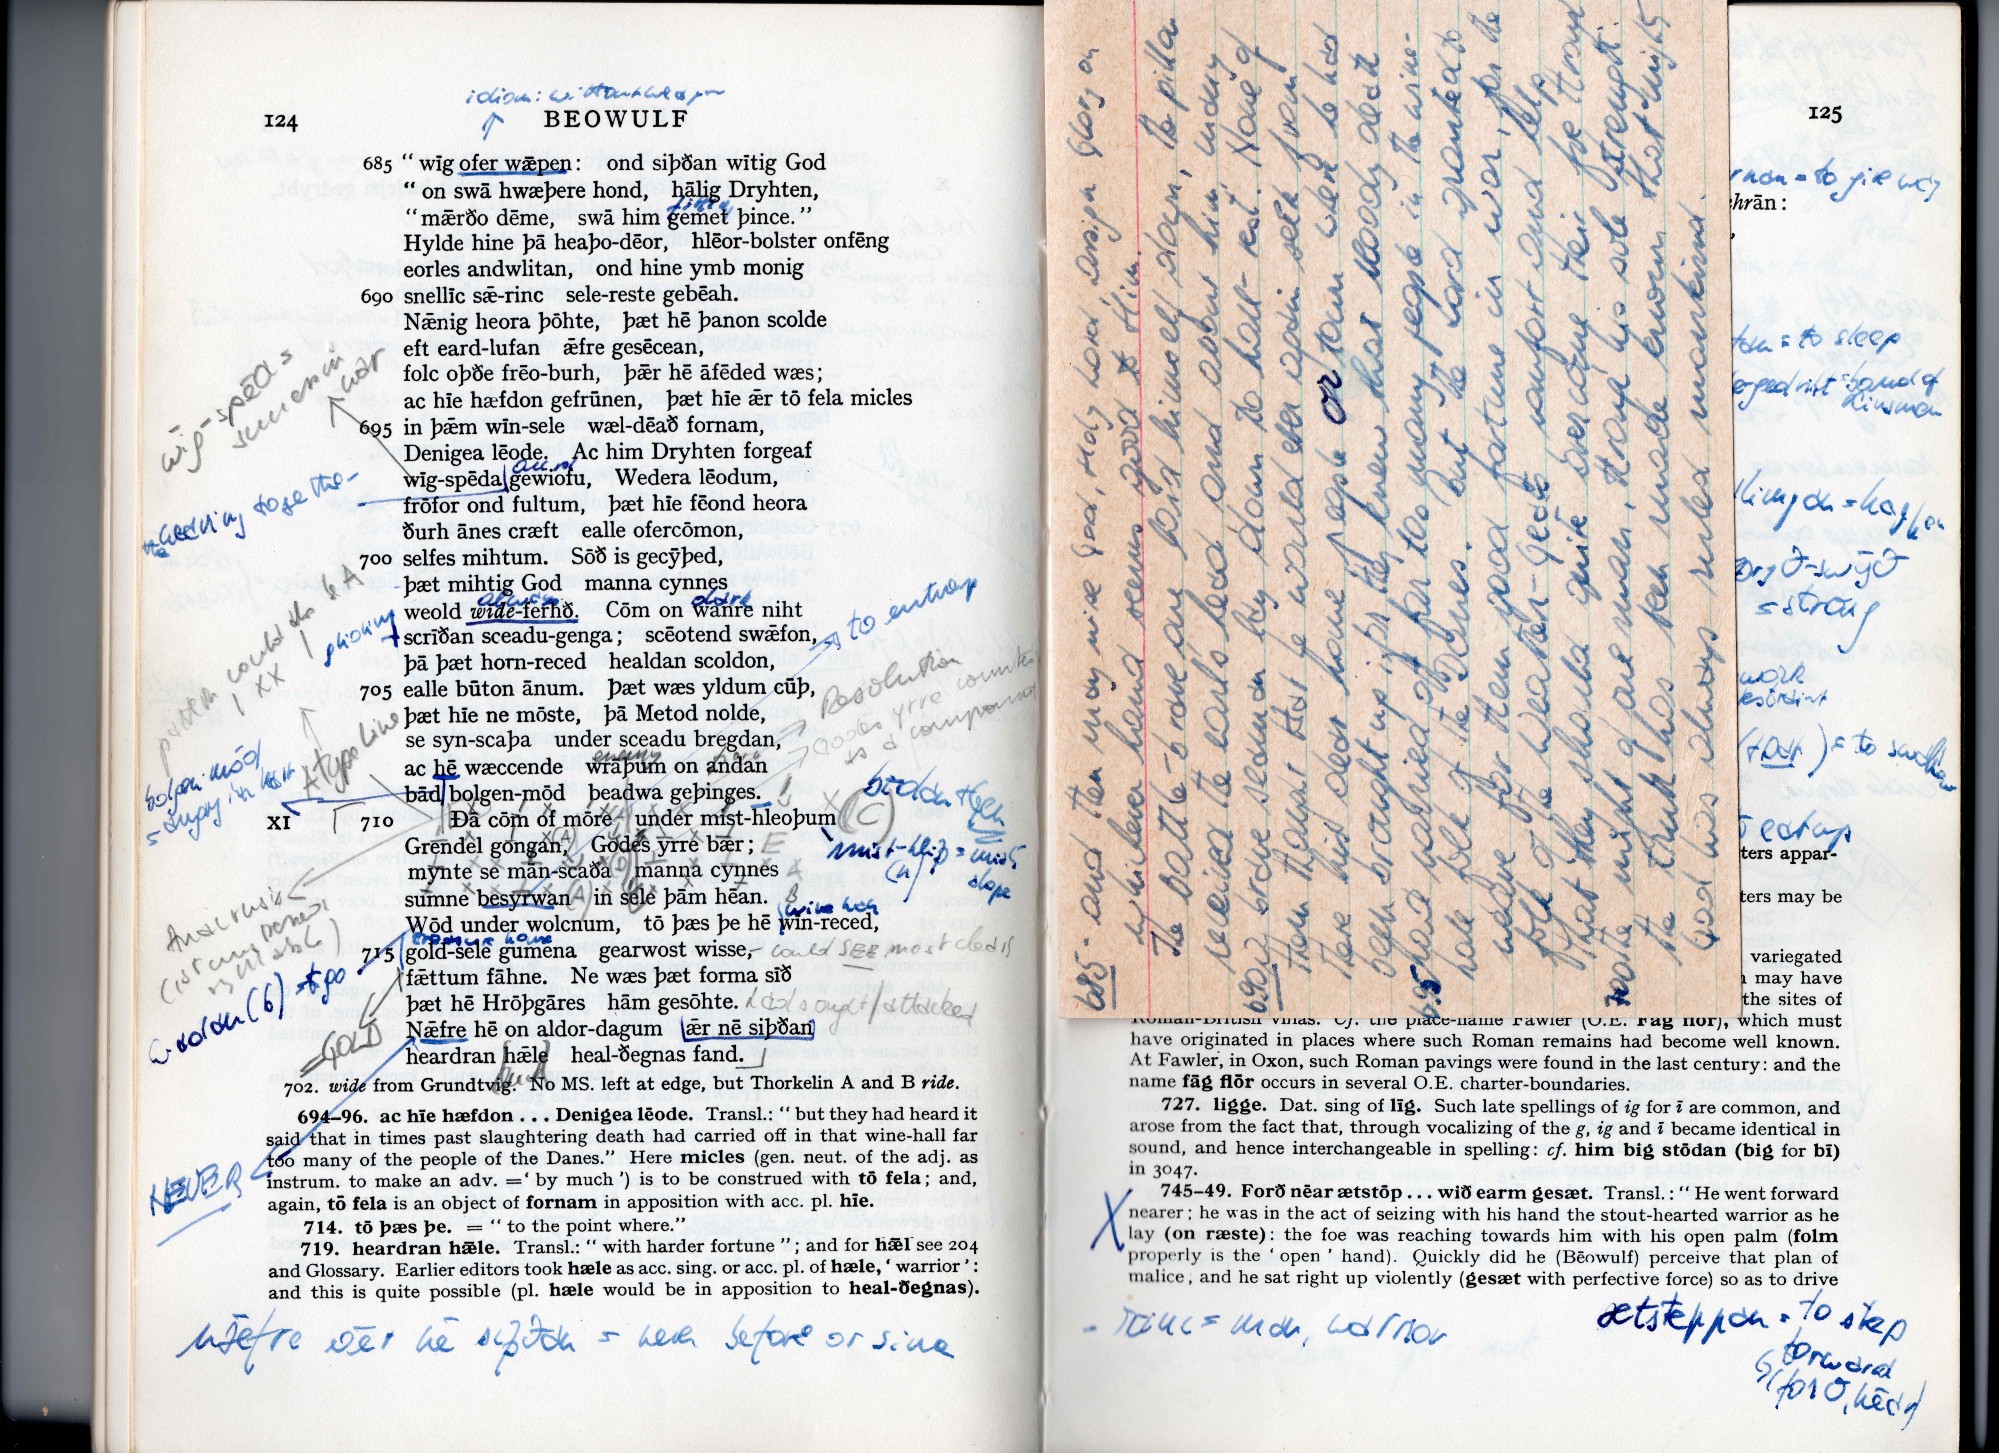 idiom: without weapon
124
BEOWULF
685 “ wīg ofer wǣpen : ond siþðan wītig God
“ on swā hwæþere hond, hālig Dryhten,
fitting
“ mǣrðo dēme, swā him gemet þince.”
Hylde hine þā heaþo-dēor, hlēor-bolster onfēng
eorles andwlitan, ond hine ymb monig
690 snellīc sǣ-rinc sele-reste gebēah.
Nǣnig heora þōhte, þæt hē þanon scolde
eft eard-lufan ǣfre gesēcean,
folc oþðe frēo-burh, þǣr hē āfēded wæs ;
ac hīe hæfdon gefrūnen, þæt hīe ǣr tō fela micles
695 in þǣm wīn-sele wæl-dēað fornam,
Denigea lēode. Ac him Dryhten forgeaf
wīg-spēda gewiofu, Wedera lēodum,
frōfor ond fultum, þæt hīe fēond heora
ðurh ānes cræft ealle ofercōmon,
700 selfes mihtum. Sōð is gecȳþed,
þæt mihtig God manna cynnes
always dark
weold wīde-ferhð. Cōm on wanre niht
scrīðan sceadu-genga ; scēotend swǣfon,
þā þæt horn-reced healdan scoldon,
705 ealle būton ānum. Þæt wæs yldum cūþ,
þæt hīe ne mōste, þā Metod nolde,
se syn-scaþa under sceadu bregdan,
enemy
ac hē wæccende wrāþum on andan
bād bolgen-mōd beadwa geþinges.
XI 710 Ðā cōm of mōre under mist-hleoþum
Grendel gongan, Godes yrre bær ;
mynte se mān-scaða manna cynnes
sumne besyrwan in sele þām hēan.
wine hall
Wōd under wolcnum, tō þæs þe hē wīn-reced,
treasure house
715 gold-sele gumena gearwost wisse, - could SEE most clearly
fǣttum fāhne. Ne wæs þæt forma sīð
þæt hē Hrōþgāres hām gesōhte. had sought/attacked
Nǣfre hē on aldor-dagum ǣr nē siþðan
heardran hǣle heal-ðegnas fand.
wīg-spēda =
success in
war
weaving together
gliding
pattern could be A
A type line
bolgen-mōd
= angry in heart
Anacrusis
(1st unstressed
syllable)
wadan (6) = to go
= GOLD
NEVER
to entrap
Resolution
Godes yrre counts
as a compound
mist-hliþ = mist
slope
702. wide from Grundtvig. No MS. left at edge, but Thorkelin A and B ride.
694–96. ac hīe hæfdon . . . Denigea lēode. Transl.: “ but they had heard it
said that in times past slaughtering death had carried off in that wine-hall far
too many of the people of the Danes.” Here micles (gen. neut. of the adj. as
instrum. to make an adv. =‘ by much ’) is to be construed with tō fela ; and,
again, tō fela is an object of fornam in apposition with acc. pl. hīe.
714. tō þæs þe. = “ to the point where.”
719. heardran hǣle. Transl.: “ with harder fortune ” ; and for hǣl see 204
and Glossary. Earlier editors took hæle as acc. sing. or acc. pl. of hæle, ‘ warrior ’ :
and this is quite possible (pl. hæle would be in apposition to heal-ðegnas).
nǣfre ǣr nē siþðan = never before or since
685 - and then may wise God, Holy Lord assign glory on
whichever hand seems good to Him.
The battle-brave one laid himself down, the pillow
received the earl's head and about him many
690 a brave seaman lay down to hall-rest. None of
them thought that he would ever again seek from
there his dear home, people or town where he had
been brought up; for they knew that bloody death
695 had carried off far too many people in the wine-
hall folk of the Danes. But the Lord granted to
weave for them good fortune in war, for the
folk of the Weather-Geats, comfort and help
that they should quite overcome their foe through
700 the might of one man, through his sole strength.
The truth has been made known that mighty
God has always ruled mankind.
125
= to give way
hrān :
= to sleep
band of
kinsmen
= strong
work
= to swallow
eat up
ters appar-
ters may be
variegated
may have
the sites of
Roman-British villas. Cf. the place-name Fawler (O.E. Fāg flōr), which must
have originated in places where such Roman remains had become well known.
At Fawler, in Oxon, such Roman pavings were found in the last century : and the
name fāg flōr occurs in several O.E. charter-boundaries.
727. ligge. Dat. sing of līg. Such late spellings of ig for ī are common, and
arose from the fact that, through vocalizing of the g, ig and ī became identical in
sound, and hence interchangeable in spelling : cf. him big stōdan (big for bī)
in 3047.
745–49. Forð nēar ætstōp . . . wið earm gesæt. Transl. : “ He went forward
nearer ; he was in the act of seizing with his hand the stout-hearted warrior as he
lay (on ræste) : the foe was reaching towards him with his open palm (folm
properly is the ‘ open ’ hand). Quickly did he (Bēowulf) perceive that plan of
malice, and he sat right up violently (gesæt with perfective force) so as to drive
- rinc = man, warrior
ætsteppan = to step
forward